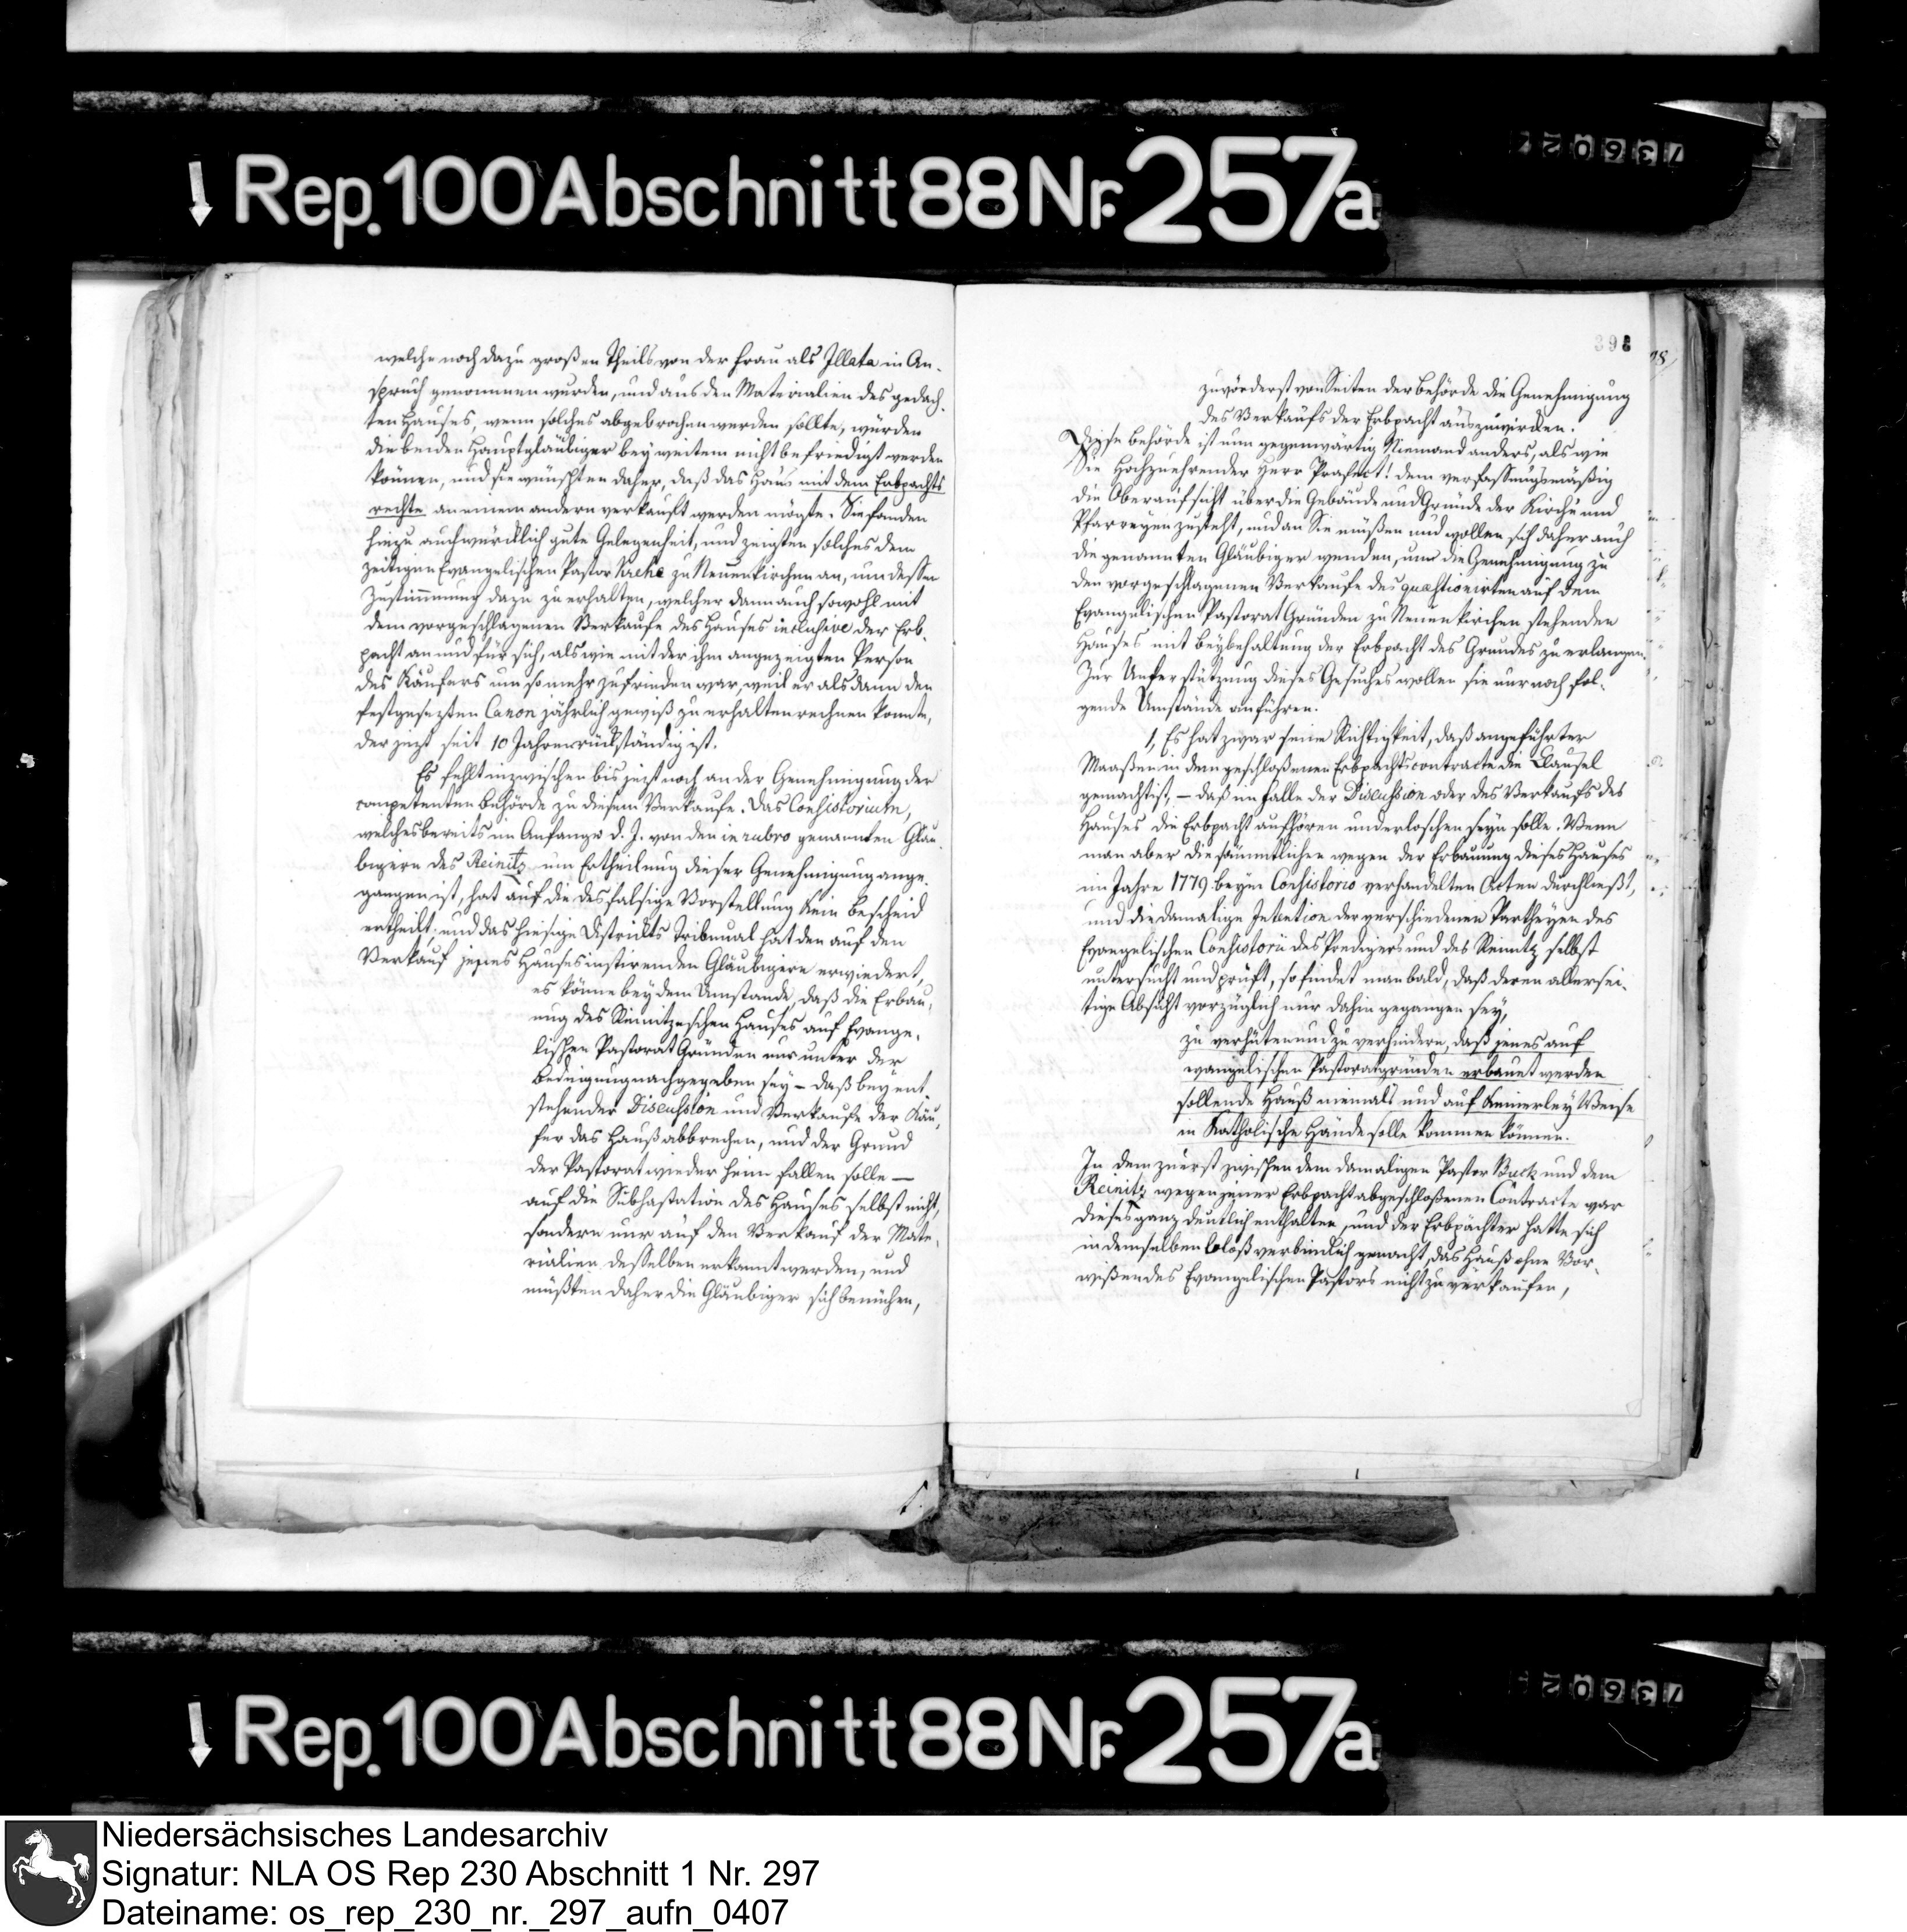 Rep. 100 Abschnitt 88 Nr. 257a
welche noch dazu großen Theils von der Frau als Illata in An-
spruch genommen wurden, und aus den Materialien des gedach-
ten Hauses, wenn solches abgebrochen werden sollte, würden
die beiden Hauptgläubiger bey weitem nicht befriedigt werden
können, und sie wünschten daher, daß das Haus mit dem Erbpachts
rechte an einem andern verkauft werden mögte. Sie fanden
hiezu auch würcklich gute Gelegenheit, und zeigten solches dem
zeitigen Evangelischen Pastor Krehe zu Neuenkirchen an, um dessen
Zustimmung dazu zu erhalten, welcher dann auch sowohl mit
dem vorgeschlagenen Verkaufe des Hauses inclusive der Erb-
pacht an und für sich, als wie mit der ihm angezeigten Person
des Käufers um so mehr zufrieden war, weil er alsdann den
festgesezten Canon jährlich gewiß zu erhalten rechnen konnte,
der jezt seit 10 Jahren rückständig ist.
Es fehlt inzwischen bis jezt noch an der Genehmigung der
competenten Behörde zu diesem Verkaufe. Das Consistorium,
welches bereits im Anfange d. J. von den in rubro genannten Gläu-
bigern des Reinitz um Ertheilung dieser Genehmigung ange-
gangen ist, hat auf die desfalsige Vorstellung kein Bescheid
ertheilt; und das hiesige Districkts Tribunal hat den auf den
Verkauf jenes Hauses instirenden Gläubigern erwiedert,
es könne bey dem Umstande, daß die Erbau-
ung des Reinitzeschen Hauses auf Evange-
lischen Pastorat Gründen nur unter der
Bedingung nachgegeben sey – daß bey ent-
stehender Discussion und Verkaufe der Käu-
fer das Hauß abbrechen, und der Grund
der Pastorat wieder heim fallen solle –
auf die Subhastation des Hauses selbst nicht,
sondern nur auf den Verkauf der Mate-
rialien desselben erkannt werden, und
müßten daher die Gläubiger sich bemühen,
398
zuvörderst von Seiten der Behörde die Genehmigung
des Verkaufs der Erbpacht auszuwirken.
Diese Behörde ist nun gegenwärtig Niemand anders, als wie
Sie Hochzuehrender Herr Praefect! dem verfassungsmäßig
die Oberaufsicht über die Gebäude und Gründe der Kirche und
Pfarreyen zusteht, und an Sie müßen und wollen sich daher auch
die genannten Gläubiger wenden, um die Genehmigung zu
den vorgeschlagenen Verkaufe des quaestionirten auf dem
Evangelischen Pastorat Gründen zu Neuenkirchen stehenden
Hauses mit Beybehaltung der Erbpacht des Grundes zu erlangen.
Zur Unterstützung dieses Gesuches wollen sie nur noch fol-
gende Umstände anführen.
1, Es hat zwar seine Richtigkeit, daß angeführter
Maaßen in dem geschloßenen Erbpachtscontracte die Clausel
gemacht ist, – daß im Falle der Discussion oder des Verkaufs des
Hauses die Erbpacht aufhören und erloschen seyn solle. Wenn
man aber die sämmtlichen wegen der Erbauung dieses Hauses
im Jahre 1779 beym Consistorio verhandelten Acten durchließt,
und die damalige Intention der verschiedenen Partheyen des
Evangelischen Consistorii des Predigers und des Reinitz selbst
untersucht und prüft, so findet man bald, daß deren allersei-
tige Absicht vorzüglich nur dahin gegangen sey,
zu verhüten und zu verhindern, daß jenes auf
evangelischen Pastoratgründen erbauet werden
sollende Hauß niemals und auf keinerley Weise
in Katholische Hände solle kommen können.
In dem zuerst zwischen dem damaligen Pastor Buck und dem
Reinitz wegen jener Erbpacht abgeschloßenen Contracte war
dieses ganz deutlich enthalten, und der Erbpächter hatte sich
in demselben bloß verbindlich gemacht, das Hauß ohne Vor-
wißen des Evangelischen Pastors nicht zu verkaufen,
Rep. 100 Abschnitt 88 Nr. 257a
Niedersächsisches Landesarchiv
Signatur: NLA OS Rep 230 Abschnitt 1 Nr. 297
Dateiname: os_rep_230_nr._297_aufn_0407